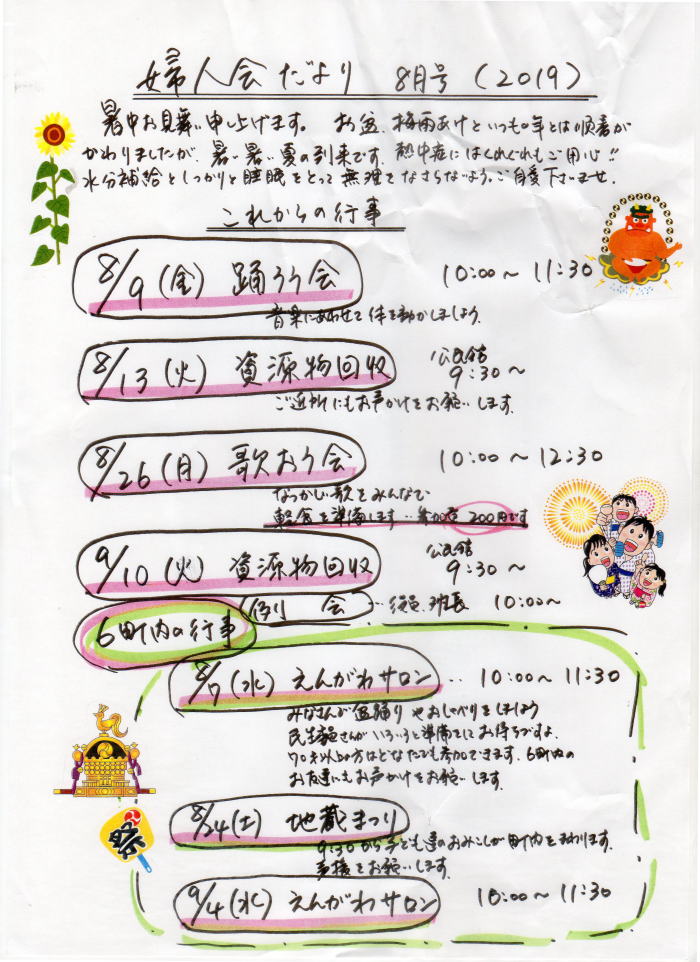 婦人会だより 8月号 (2019)
暑中お見舞い申し上げます。 お盆、梅雨あけといつもの年とは順番が
かわりましたが、暑い暑い夏の到来です。熱中症にはくれぐれもご用心!!
水分補給としっかりと睡眠をとって無理をなさらないよう、ご自愛下さいませ.
これからの行事
8/9(金) 踊ろう会 10:00~11:30
音楽にあわせて体を動かしましょう.
8/13(火) 資源物回収 公民館 9:30~
ご近所にもお声かけをお願いします.
8/26(月) 歌おう会 10:00~12:30
なつかしい歌をみんなで
軽食を準備します…参加費 200円です
9/10(火) 資源物回収 公民館 9:30~
例会 …役員、班長 10:00~
6町内の行事
8/7(水) えんがわサロン… 10:00~11:30
みなさんで盆踊りやおしゃべりをしましょう
民生委員さんがいろいろと準備をしてお待ちですよ.
70才以上の方はどなたでも参加できます.6町内の
お友達にもお声かけをお願いします.
8/24(土) 地蔵まつり
9:30から子ども達のおみこしが町内をまわります.
声援をお願いします.
祭
9/4(水) えんがわサロン 10:00~11:30